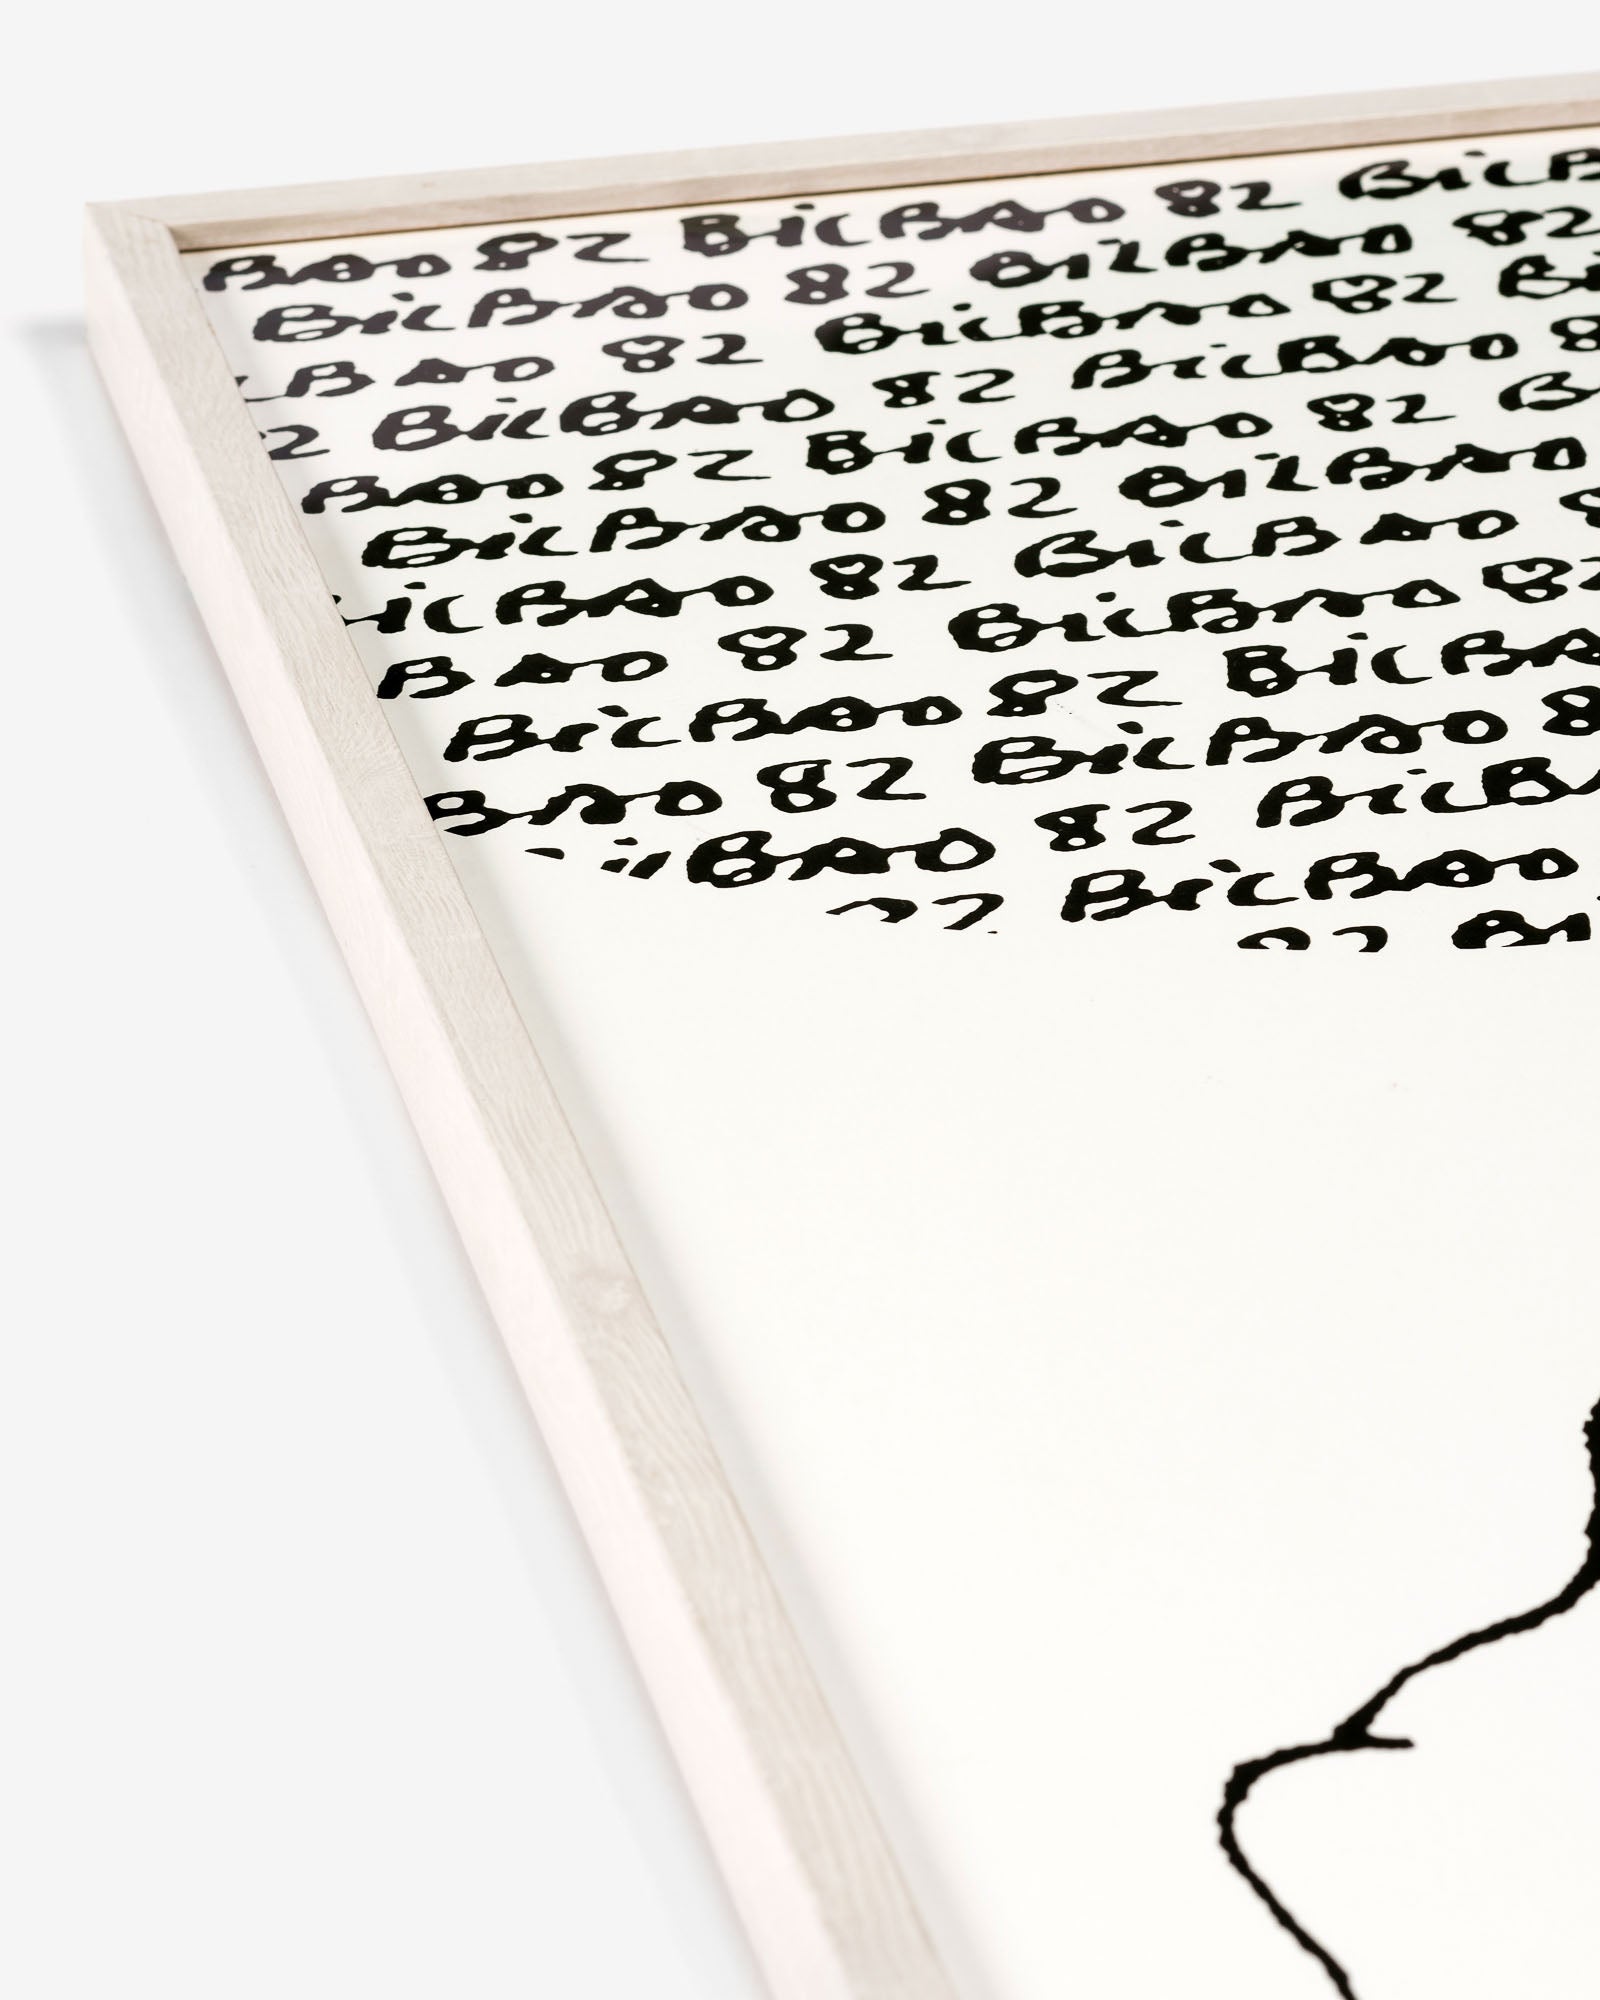 BAO 82 BiLBAO 82 BiLB
BiLBAO 82 BiLBAO 82
LBAO 82 BiLBAO 82 Bi
2 BiLBAO 82 BiLBAO 8
BAO 82 BiLBAO 82 B
BiLBAO 82 BiLBAO
BiLBAO 82 BiLBAO 8
BAO 82 BiLBAO 82
BiLBAO 82 BiLBA
BAO 82 BiLBAO 8
BiLBAO 82 BiLBA
82 BiLBAO
82 Bi